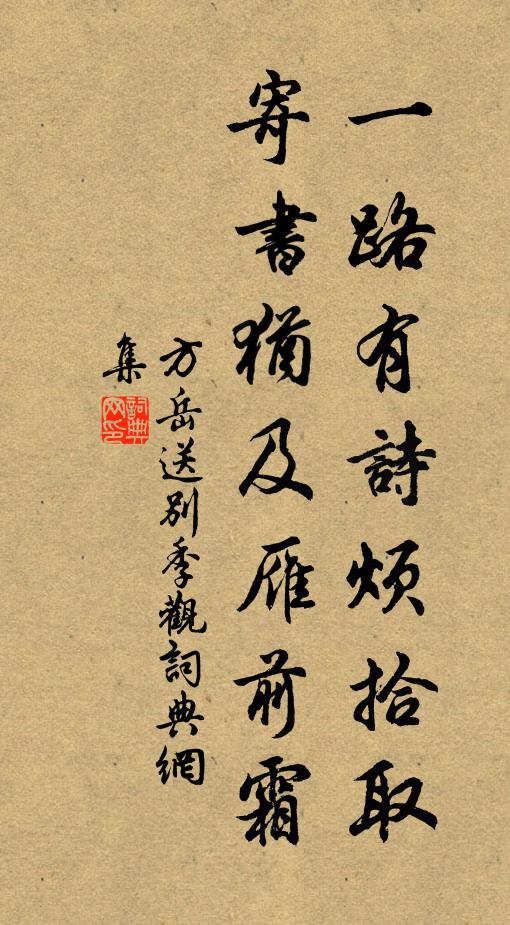 一路有詩煩拾取
寄書猶及雁前霜
方岳送別季觀詞典網
集
詞典
网印